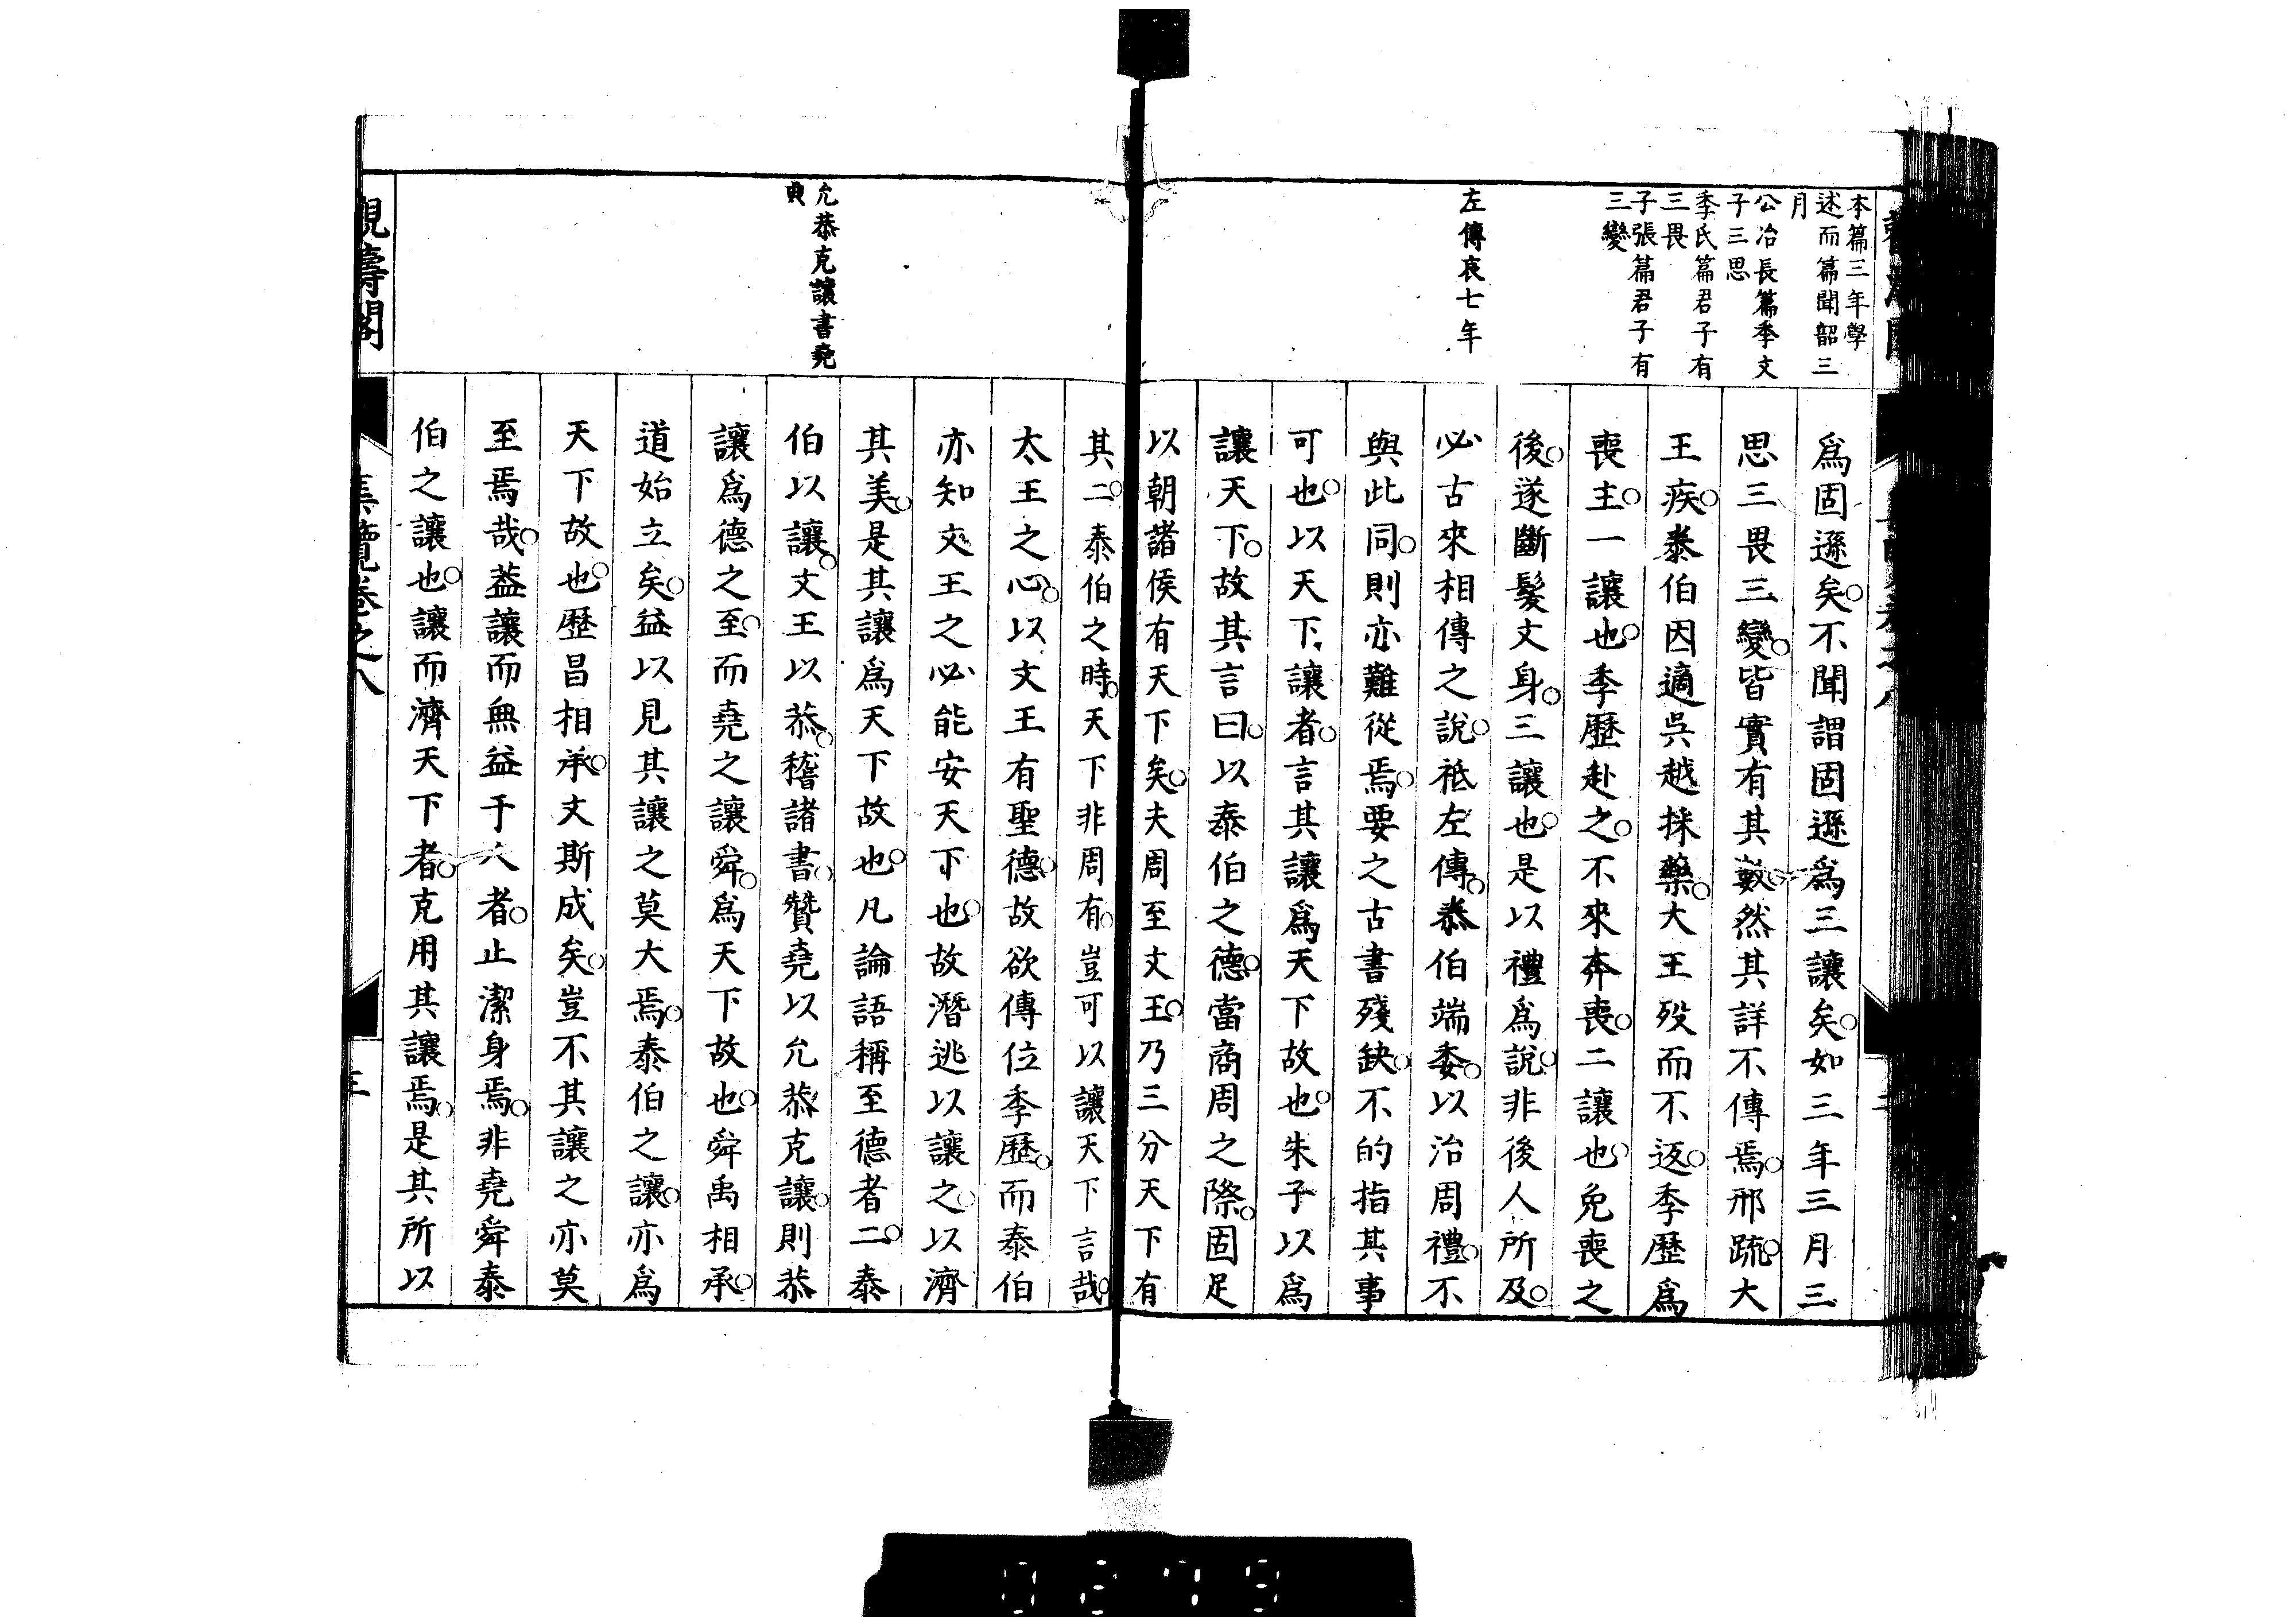 本篇三年學
述而篇聞韶三
月
公冶長篇季文
子三思
季氏篇君子有
三畏
子張篇君子有
三變
左傳哀七年
爲固遜矣不聞謂固遜爲三讓矣如三年三月三
思三畏三變皆實有其數然其詳不傳焉邢疏大
王疾泰伯因適吳越採藥大王歿而不返季歷爲
喪主一讓也季歷赴之不來奔喪二讓也免喪之
後遂斷髮文身三讓也是以禮爲說非後人所及
必古來相傳之說祗左傳泰伯端委以治周禮不
與此同則亦難從焉要之古書殘缺不的指其事
可也以天下讓者言其讓爲天下故也朱子以爲
讓天下故其言曰以泰伯之德當商周之際固足
以朝諸侯有天下矣夫周至文王乃三分天下有
其二泰伯之時天下非周有豈可以讓天下言哉
太王之心以文王有聖德故欲傳位季歷而泰伯
亦知文王之必能安天下也故潛逃以讓之以濟
其美是其讓爲天下故也凡論語稱至德者二泰
伯以讓文王以恭稽諸書贊堯以允恭克讓則恭
讓爲德之至而堯之讓舜爲天下故也舜禹相承
道始立矣益以見其讓之莫大焉泰伯之讓亦爲
天下故也歷昌相承文斯成矣豈不其讓之亦莫
至焉哉蓋讓而無益于人者止潔身焉非堯舜泰
伯之讓也讓而濟天下者克用其讓焉是其所以
允恭克讓書堯
典
觀濤閣
集覽卷之八